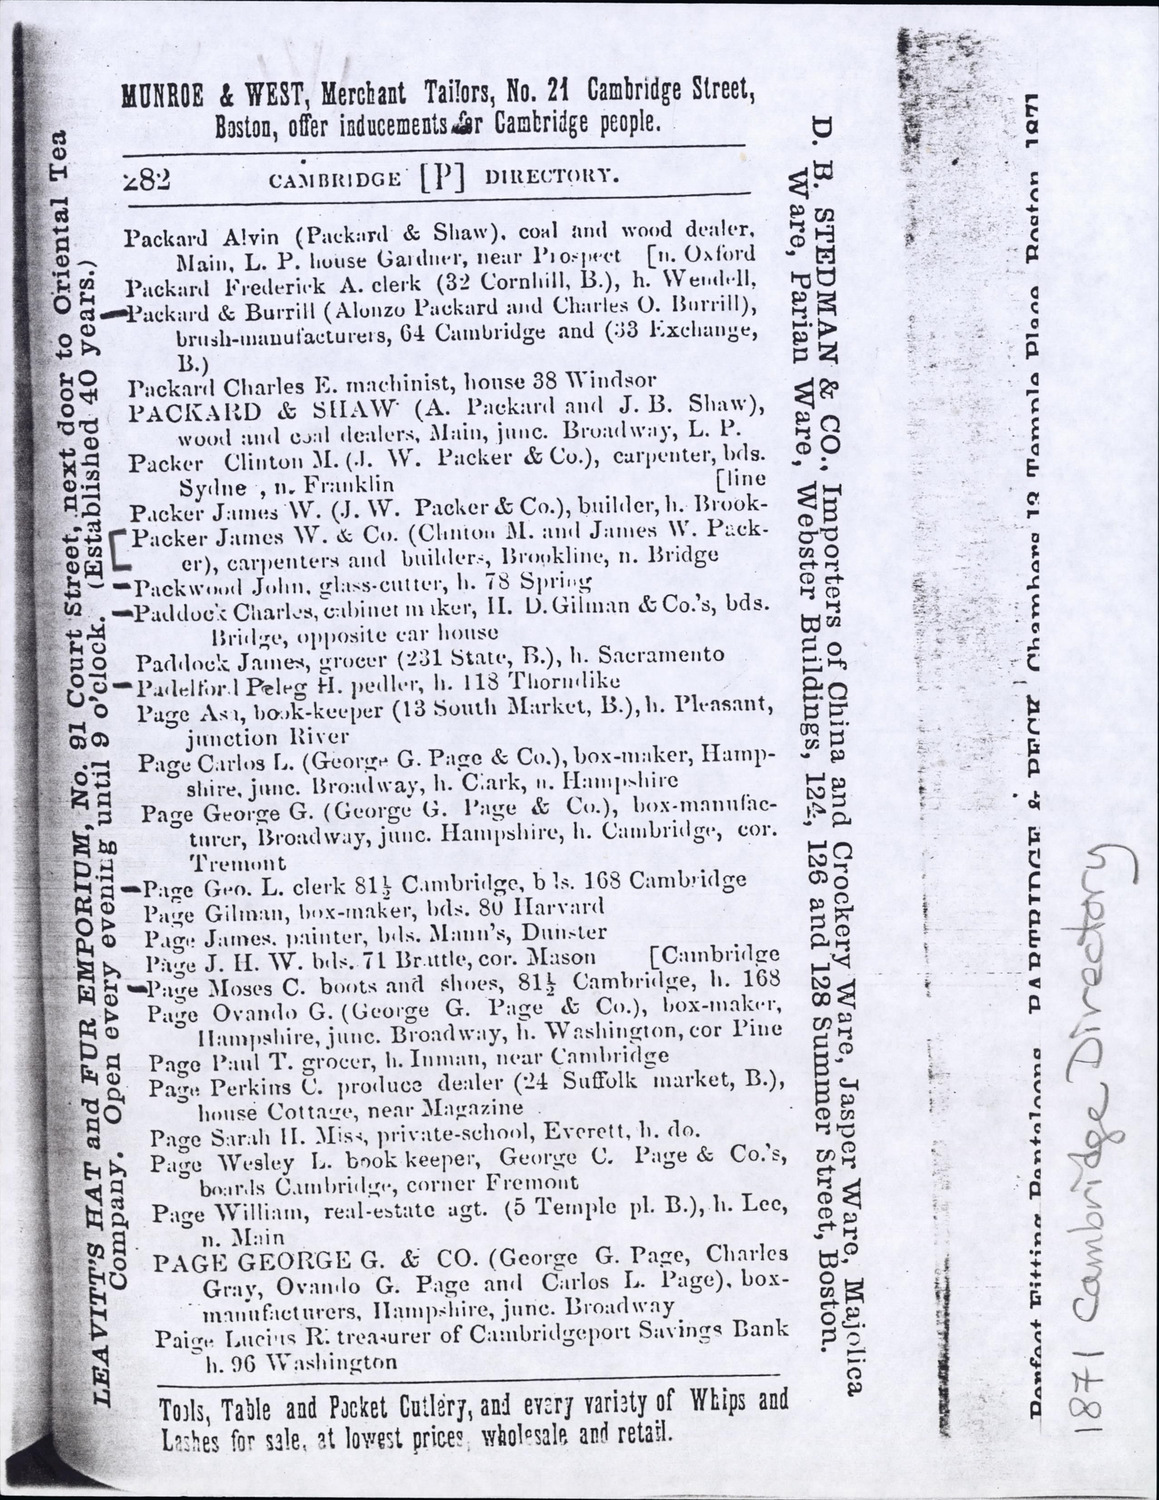 MUNROE & WEST, Merchant Tailors, No. 21 Cambridge Street,
Boston, offer inducements for Cambridge people.
282 CAMBRIDGE [P] DIRECTORY.
Packard Alvin (Packard & Shaw), coal and wood dealer,
Main, L. P. house Gardner, near Prospect [n. Oxford
Packard Frederick A. clerk (32 Cornhill, B.), h. Wendell,
Packard & Burrill (Alonzo Packard and Charles O. Burrill),
brush-manufacturers, 64 Cambridge and (33 Exchange,
B.)
Packard Charles E. machinist, house 38 Windsor
PACKARD & SHAW (A. Packard and J. B. Shaw),
wood and coal dealers, Main, junc. Broadway, L. P.
Packer Clinton M. (J. W. Packer & Co.), carpenter, bds.
Sydne , n. Franklin [line
Packer James W. (J. W. Packer & Co.), builder, h. Brook-
Packer James W. & Co. (Clinton M. and James W. Pack-
er), carpenters and builders, Brookline, n. Bridge
Packwood John, glass-cutter, h. 78 Spring
Paddock Charles, cabinet maker, H. D. Gilman & Co.'s, bds.
Bridge, opposite car house
Paddock James, grocer (231 State, B.), h. Sacramento
Padelford Peleg H. pedler, h. 118 Thorndike
Page Asa, book-keeper (13 South Market, B.), h. Pleasant,
junction River
Page Carlos L. (George G. Page & Co.), box-maker, Hamp-
shire, junc. Broadway, h. Clark, n. Hampshire
Page George G. (George G. Page & Co.), box-manufac-
turer, Broadway, junc. Hampshire, h. Cambridge, cor.
Tremont
Page Geo. L. clerk 81½ Cambridge, bds. 168 Cambridge
Page Gilman, box-maker, bds. 80 Harvard
Page James, painter, bds. Mann's, Dunster
Page J. H. W. bds. 71 Brattle, cor. Mason [Cambridge
Page Moses C. boots and shoes, 81½ Cambridge, h. 168
Page Ovando G. (George G. Page & Co.), box-maker,
Hampshire, junc. Broadway, h. Washington, cor Pine
Page Paul T. grocer, h. Inman, near Cambridge
Page Perkins C. produce dealer (24 Suffolk market, B.),
house Cottage, near Magazine
Page Sarah H. Miss, private-school, Everett, h. do.
Page Wesley L. book keeper, George C. Page & Co.'s,
boards Cambridge, corner Fremont
Page William, real-estate agt. (5 Temple pl. B.), h. Lee,
n. Main
PAGE GEORGE G. & CO. (George G. Page, Charles
Gray, Ovando G. Page and Carlos L. Page), box-
manufacturers, Hampshire, junc. Broadway
Paige Lucius R. treasurer of Cambridgeport Savings Bank
h. 96 Washington
Tools, Table and Pocket Cutlery, and every variety of Whips and
Lashes for sale, at lowest prices, wholesale and retail.
LEAVITT'S HAT and FUR EMPORIUM, No. 91 Court Street, next door to Oriental Tea
Company. Open every evening until 9 o'clock. (Established 40 years.)
D. B. STEDMAN & CO., Importers of China and Crockery Ware, Jasper Ware, Majolica
Ware, Parian Ware, Webster Buildings, 124, 126 and 128 Summer Street, Boston.
Perfect Fitting Pantaloons PARTRIDGE & PECK Chambers 13 Temple Place Boston 1871
1871 Cambridge Directory